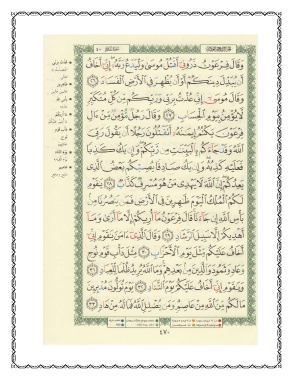 وَقَالَ فِرْعَوْنُ ذَرُونِي أَقْتُلْ مُوسَىٰ وَلْيَدْعُ رَبَّهُ إِنِّي أَخَافُ
أَن يُبَدِّلَ دِينَكُمْ أَوْ أَن يُظْهِرَ فِي الْأَرْضِ الْفَسَادَ ٢٦
وَقَالَ مُوسَىٰ إِنِّي عُذْتُ بِرَبِّي وَرَبِّكُم مِّن كُلِّ مُتَكَبِّرٍ
لَّا يُؤْمِنُ بِيَوْمِ الْحِسَابِ ٢٧ وَقَالَ رَجُلٌ مُّؤْمِنٌ مِّنْ ءَالِ
فِرْعَوْنَ يَكْتُمُ إِيمَانَهُ أَتَقْتُلُونَ رَجُلًا أَن يَقُولَ رَبِّيَ
اللَّهُ وَقَدْ جَاءَكُم بِالْبَيِّنَاتِ مِن رَّبِّكُمْ وَإِن يَكُ كَاذِبًا
فَعَلَيْهِ كَذِبُهُ وَإِن يَكُ صَادِقًا يُصِبْكُم بَعْضُ الَّذِي
يَعِدُكُمْ إِنَّ اللَّهَ لَا يَهْدِي مَنْ هُوَ مُسْرِفٌ كَذَّابٌ ٢٨ يَا قَوْمِ
لَكُمُ الْمُلْكُ الْيَوْمَ ظَاهِرِينَ فِي الْأَرْضِ فَمَن يَنصُرُنَا مِن
بَأْسِ اللَّهِ إِن جَاءَنَا قَالَ فِرْعَوْنُ مَا أُرِيكُمْ إِلَّا مَا أَرَىٰ وَمَا
أَهْدِيكُمْ إِلَّا سَبِيلَ الرَّشَادِ ٢٩ وَقَالَ الَّذِي ءَامَنَ يَا قَوْمِ إِنِّي
أَخَافُ عَلَيْكُم مِّثْلَ يَوْمِ الْأَحْزَابِ ٣٠ مِثْلَ دَأْبِ قَوْمِ نُوحٍ
وَعَادٍ وَثَمُودَ وَالَّذِينَ مِن بَعْدِهِمْ وَمَا اللَّهُ يُرِيدُ ظُلْمًا لِّلْعِبَادِ ٣١
وَيَا قَوْمِ إِنِّي أَخَافُ عَلَيْكُمْ يَوْمَ التَّنَادِ ٣٢ يَوْمَ تُوَلُّونَ مُدْبِرِينَ
مَا لَكُم مِّنَ اللَّهِ مِنْ عَاصِمٍ وَمَن يُضْلِلِ اللَّهُ فَمَا لَهُ مِنْ هَادٍ ٣٣
٤٧٠